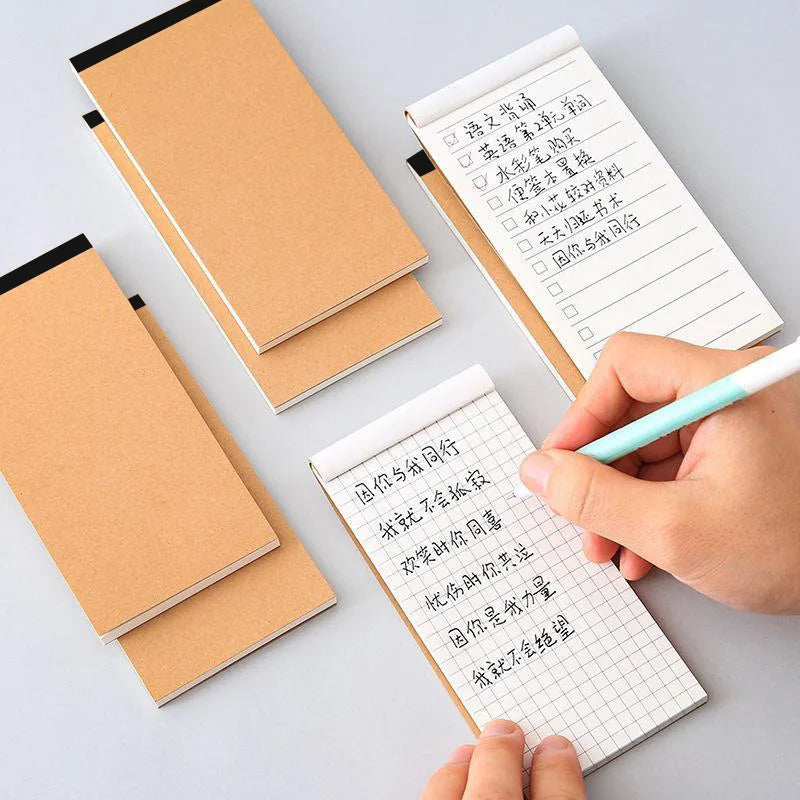 语文背诵
英语第2单元单词
水彩笔购买
便签本置换
和小花较对资料
天天归还书术
因你与我同行
因你与我同行
我就不会孤寂
欢笑时你同喜
忧伤时你共泣
因你是我力量
我就不会绝望